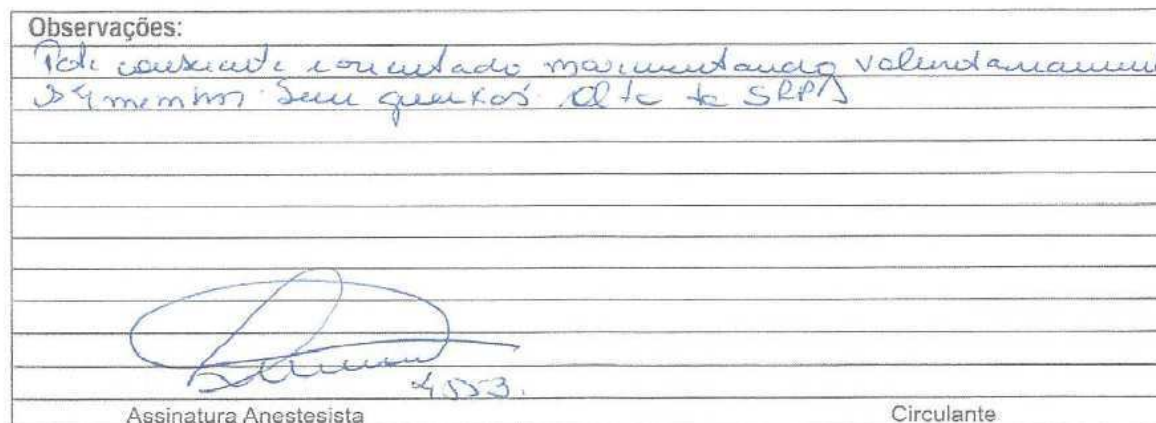 Observações:
Pcte consciente orientado movimentando voluntariamente
os 4 membros. Sem queixas. Alta da SRPA
4553.
Assinatura Anestesista Circulante